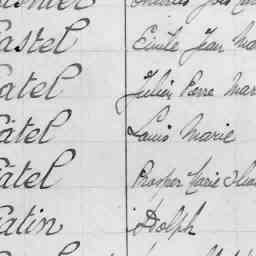 astel Emile Jean Ma
atel Julien Pierre Mar
atel Louis Marie
atel Prosper Marie
atin Adolph